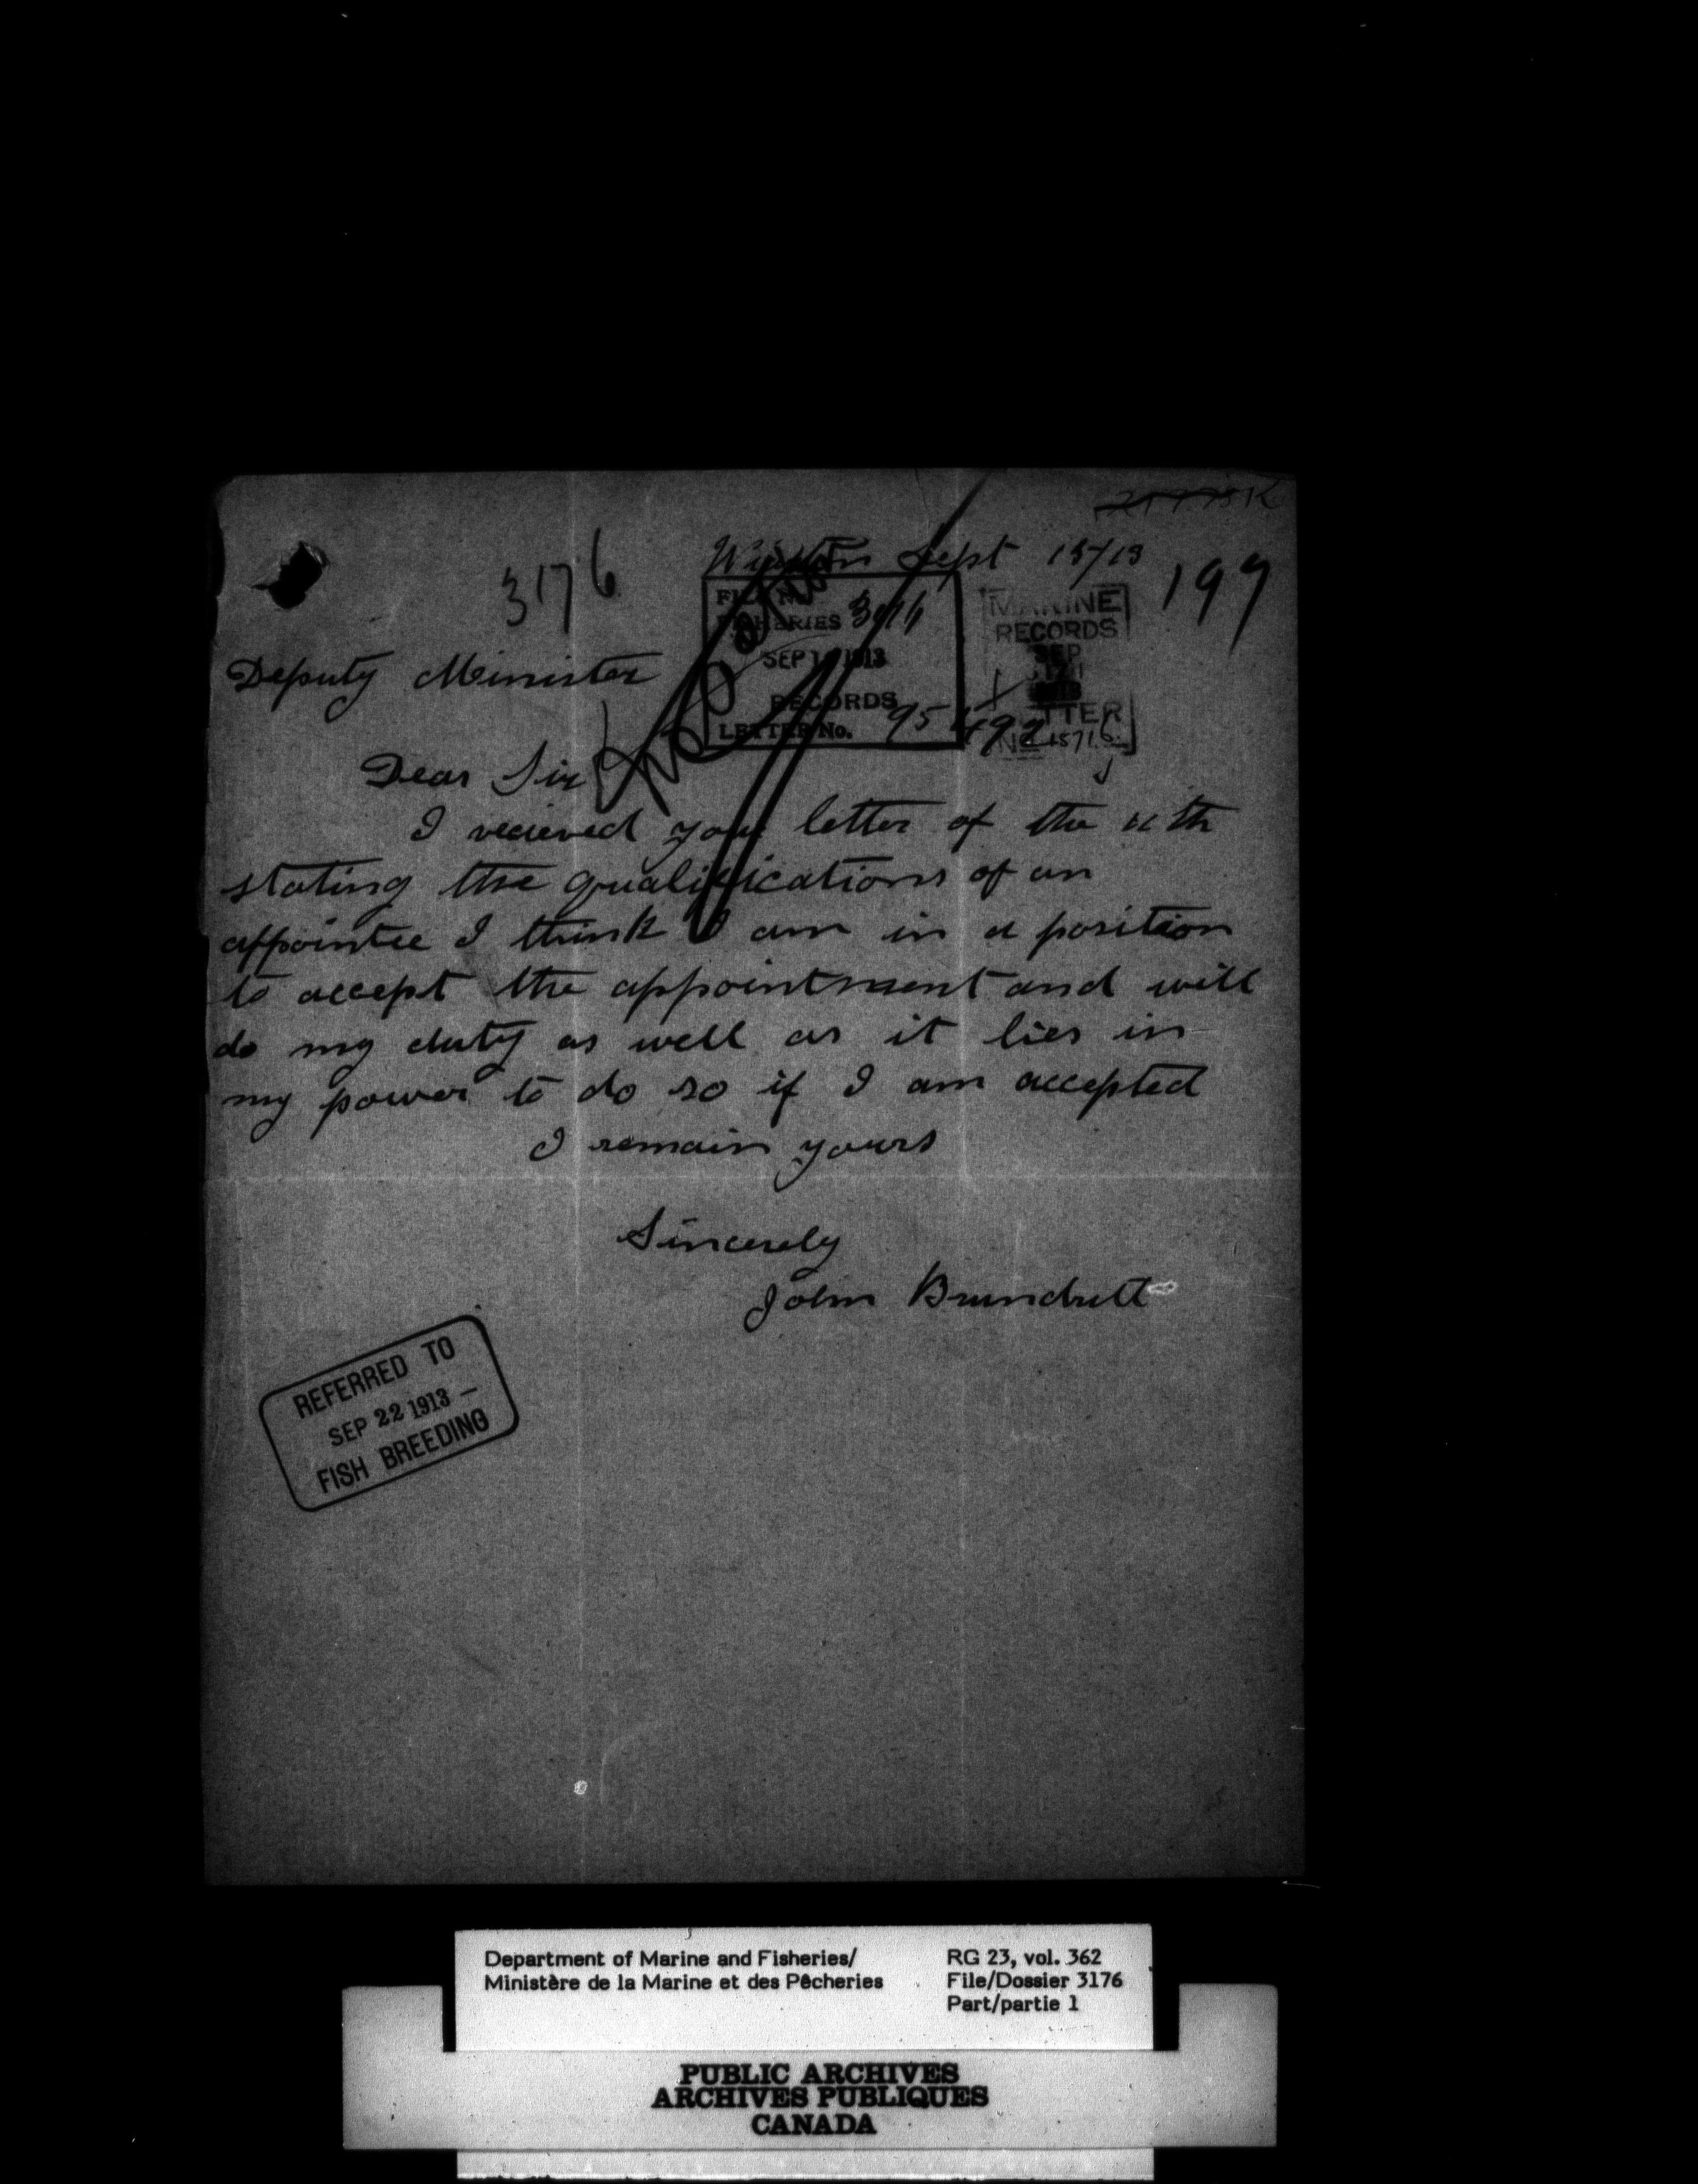 3176
Wiarton Sept 15/13
199
FILE No.
FISHERIES 3176
SEP 1 1913
RECORDS
LETTER No. 95492
MARINE
RECORDS
SEP
1913
LETTER
No 15716
Deputy Minister
Dear Sir
I recieved your letter of the 11th
stating the qualifications of an
appointee I think I am in a position
to accept the appointment and will
do my duty as well as it lies in
my power to do so if I am accepted
I remain yours
Sincerely
John Brundritt
REFERRED TO
SEP 22 1913 —
FISH BREEDING
Department of Marine and Fisheries/
Ministère de la Marine et des Pêcheries
RG 23, vol. 362
File/Dossier 3176
Part/partie 1
PUBLIC ARCHIVES
ARCHIVES PUBLIQUES
CANADA